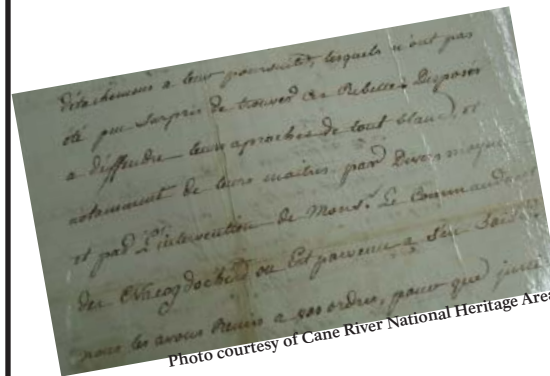 détachemens a leur poursuite, lesquels n'ont pas
été peu surpris de trouver ces Rebelles Disposés
a deffendre leurs aproches de tout blanc, et
notamment de leurs maitres, par Divers moyens
et par L'intervention de Mons.r Le Commandant
des Nacogdoches on Est parvenu a s'en saisir
nous les avons Remis a vos ordres, pour que justi
Photo courtesy of Cane River National Heritage Area